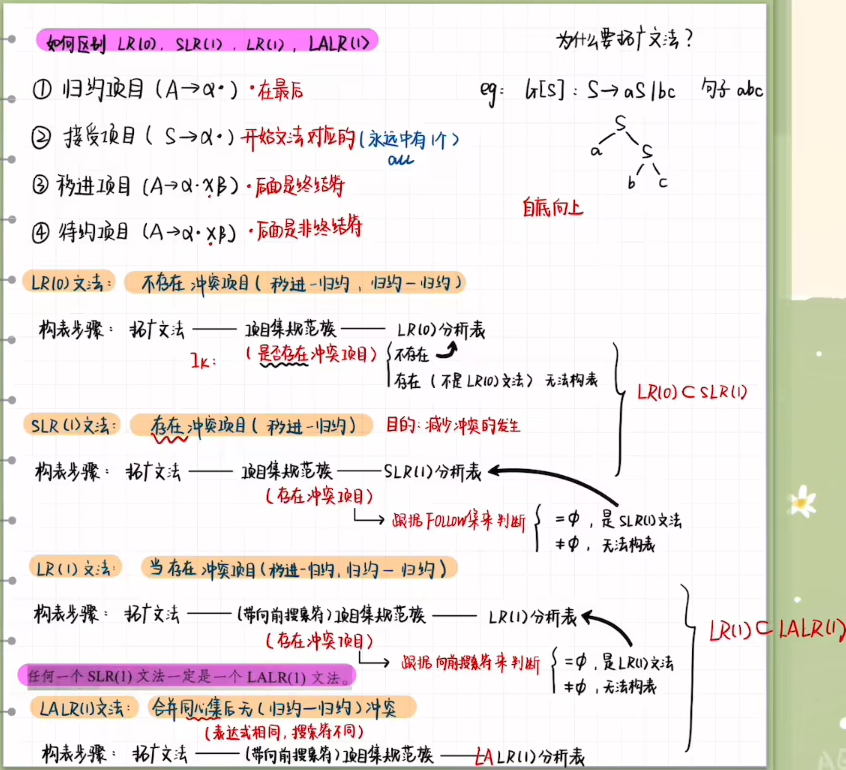 如何区别 LR(0), SLR(1), LR(1), LALR(1)
为什么要拓广文法?
① 归约项目 (A→α·) ·在最后
eg: G[S]: S→aS|bc 句子 abc
② 接受项目 (S→α·) 开始文法对应的(永远中有1个)
all
③ 移进项目 (A→α·Xβ) ·后面是终结符
④ 待约项目 (A→α·Xβ) ·后面是非终结符
S
a S
b c
自底向上
LR(0)文法: 不存在冲突项目(移进-归约, 归约-归约)
构表步骤: 拓广文法 —— 项目集规范族 —— LR(0)分析表
Ik: (是否存在冲突项目) 不存在
存在(不是LR(0)文法) 无法构表
LR(0)⊂SLR(1)
SLR(1)文法: 存在冲突项目(移进-归约) 目的:减少冲突的发生
构表步骤: 拓广文法 —— 项目集规范族 —— SLR(1)分析表
(存在冲突项目)
跟据Follow集来判断 =ϕ, 是SLR(1)文法
≠ϕ, 无法构表
LR(1)文法: 当存在冲突项目(移进-归约, 归约-归约)
构表步骤: 拓广文法 —— (带向前搜索符)项目集规范族 —— LR(1)分析表
(存在冲突项目)
跟据向前搜索符来判断 =ϕ, 是LR(1)文法
≠ϕ, 无法构表
LR(1)⊂LALR(1)
任何一个 SLR(1) 文法一定是一个 LALR(1) 文法。
LALR(1)文法: 合并同心集后无(归约-归约)冲突
(表达式相同, 搜索符不同)
构表步骤: 拓广文法 —— (带向前搜索符)项目集规范族 —— LALR(1)分析表